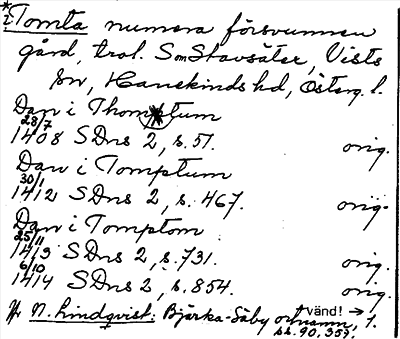 *Tomta numera försvunnen
gård, trol. Sm Stavsäter, Vists
sn, Hanekinds hd, Österg. l.
Dan i Thomptum
28/7 1408 SDns 2, s. 51. orig.
Dan i Tomptum
30/1 1412 SDns 2, s. 467. orig.
Dan i Tomptom
25/11 1413 SDns 2, s. 731. orig.
6/10 1414 SDns 2, s. 854. orig.
N. Lindqvist: Bjärka-Säby ortnamn, 1.
ss. 90, 359.
vänd! →